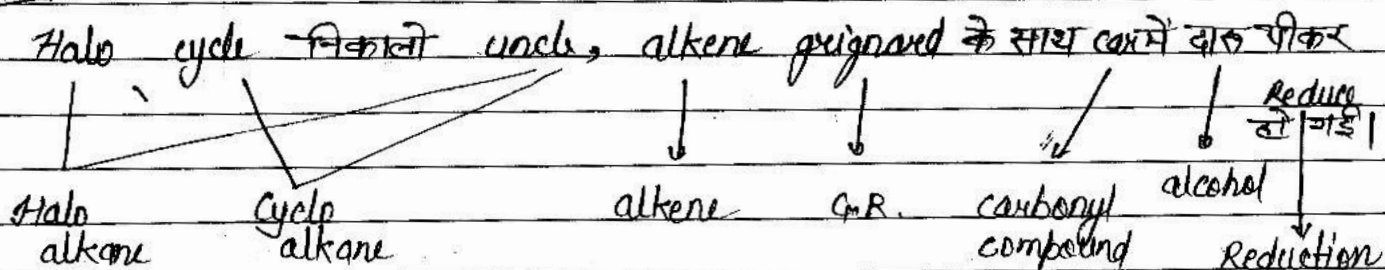 Halo cycle निकालो uncle, alkene grignard के साथ car में दारू पीकर
Reduce
हो गई।
Halo alkane Cyclo alkane alkene G.R. carbonyl compound alcohol Reduction